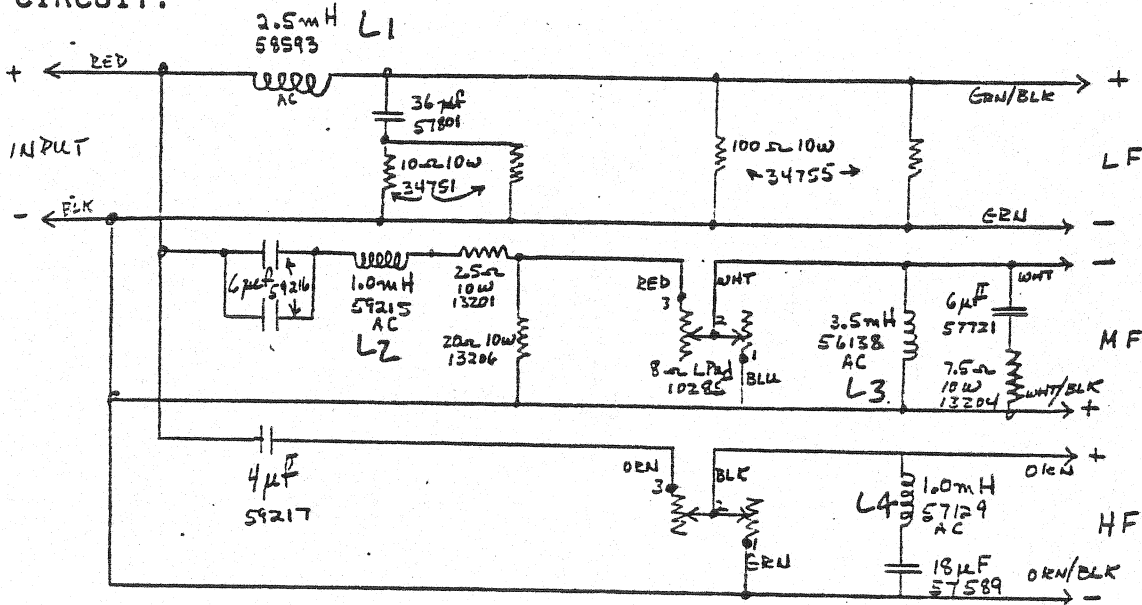 CIRCUIT:
2.5mH L1
58593
AC
+ RED
INPUT
- BLK
36µF
57801
10Ω 10W
34751
100Ω 10W
34755
GRN/BLK +
LF
GRN -
6µF
59216
1.0mH
59215
AC
L2
25Ω
10W
13201
20Ω 10W
13206
RED
3
WHT
2
1
BLU
8Ω LPad
10285
3.5mH
56138
AC
L3
6µF
57721
7.5Ω
10W
13204
WHT -
MF
WHT/BLK
+
4µF
59217
ORN
3
BLK
2
1
GRN
L4
1.0mH
57129
AC
18µF
57589
ORN +
HF
ORN/BLK
-